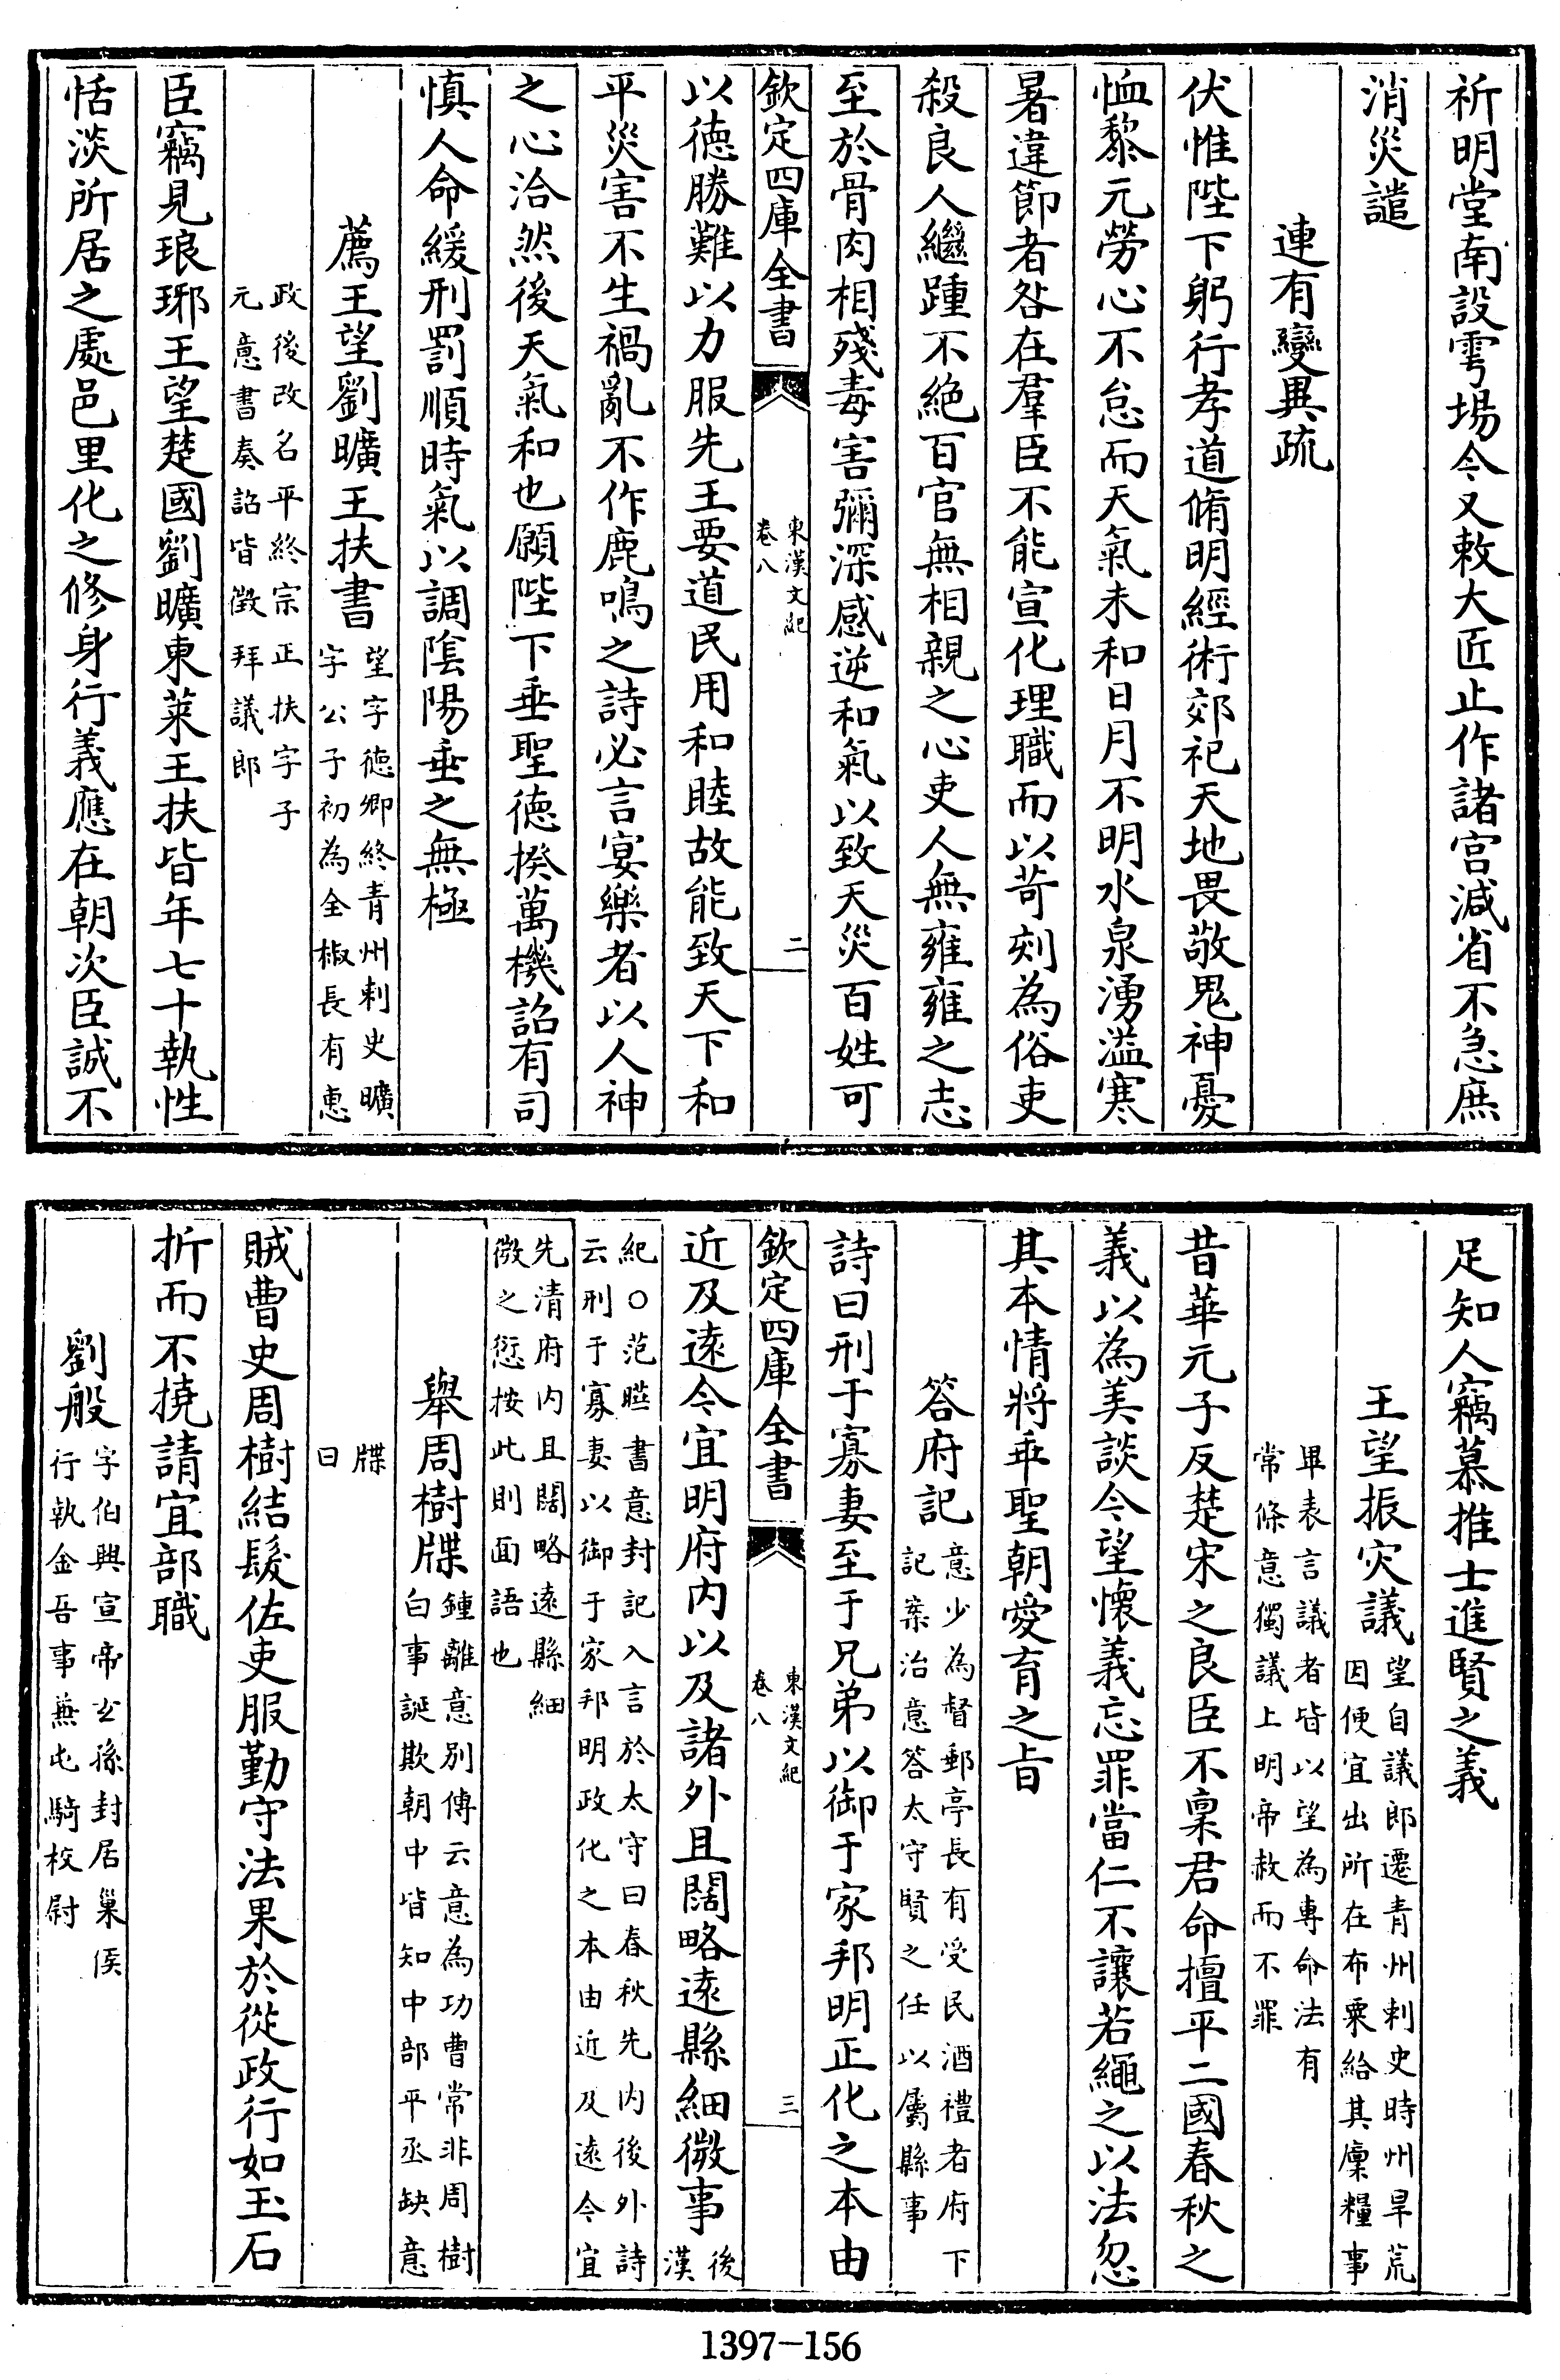 祈明堂南設雩場今又敕大匠止作諸宫減省不急庶
消災譴
連有變異疏
伏惟陛下躬行孝道脩明經術郊祀天地畏敬鬼神憂
恤黎元勞心不怠而天氣未和日月不明水泉湧溢寒
暑違節者咎在羣臣不能宣化理職而以苛刻為俗吏
殺良人繼踵不絶百官無相親之心吏人無雍雍之志
至於骨肉相殘毒害彌深感逆和氣以致天災百姓可
欽定四庫全書
東漢文紀
卷八
二
以德勝難以力服先王要道民用和睦故能致天下和
平災害不生禍亂不作鹿鳴之詩必言宴樂者以人神
之心洽然後天氣和也願陛下垂聖德揆萬機詔有司
慎人命緩刑罰順時氣以調陰陽垂之無極
薦王望劉曠王扶書
望字德卿終青州刺史曠
字公子初為全椒長有惠
政後改名平終宗正扶字子
元意書奏詔皆徵拜議郎
臣竊見琅琊王望楚國劉曠東萊王扶皆年七十執性
恬淡所居之處邑里化之修身行義應在朝次臣誠不
足知人竊慕推士進賢之義
王望振灾議
望自議郎遷青州刺史時州旱荒
因便宜出所在布粟給其廩糧事
畢表言議者皆以望為專命法有
常條意獨議上明帝赦而不罪
昔華元子反楚宋之良臣不稟君命擅平二國春秋之
義以為美談今望懷義忘罪當仁不讓若繩之以法忽
其本情將乖聖朝愛育之㫖
答府記
意少為督郵亭長有受民酒禮者府下
記案治意答太守賢之任以屬縣事
詩曰刑于寡妻至于兄弟以御于家邦明正化之本由
欽定四庫全書
東漢文紀
卷八
三
近及遠今宜明府内以及諸外且闊略遠縣細微事
後
漢
紀○范曄書意封記入言於太守曰春秋先内後外詩
云刑于寡妻以御于家邦明政化之本由近及遠今宜
先清府内且闊略遠縣細
微之愆按此則面語也
舉周樹牒
鍾離意别傳云意為功曹常非周樹
白事誕欺朝中皆知中部平丞缺意
牒
曰
賊曹史周樹結髮佐吏服勤守法果於從政行如玉石
折而不撓請宜部職
劉般
字伯興宣帝𤣥孫封居巢侯
行執金吾事兼屯騎校尉
1397-156